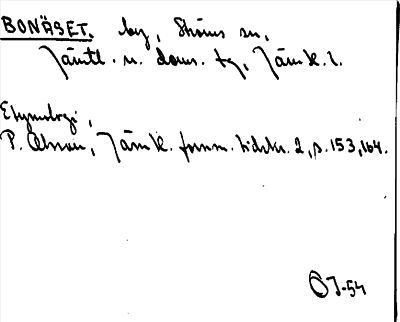 BONÄSET, by, Ströms sn,
Jämtl. n. doms. tg, Jämt. l.
Etymologi,
P. Olsson, Jämt. fornm. tidskr. 2, s. 153, 164.
OJ-54